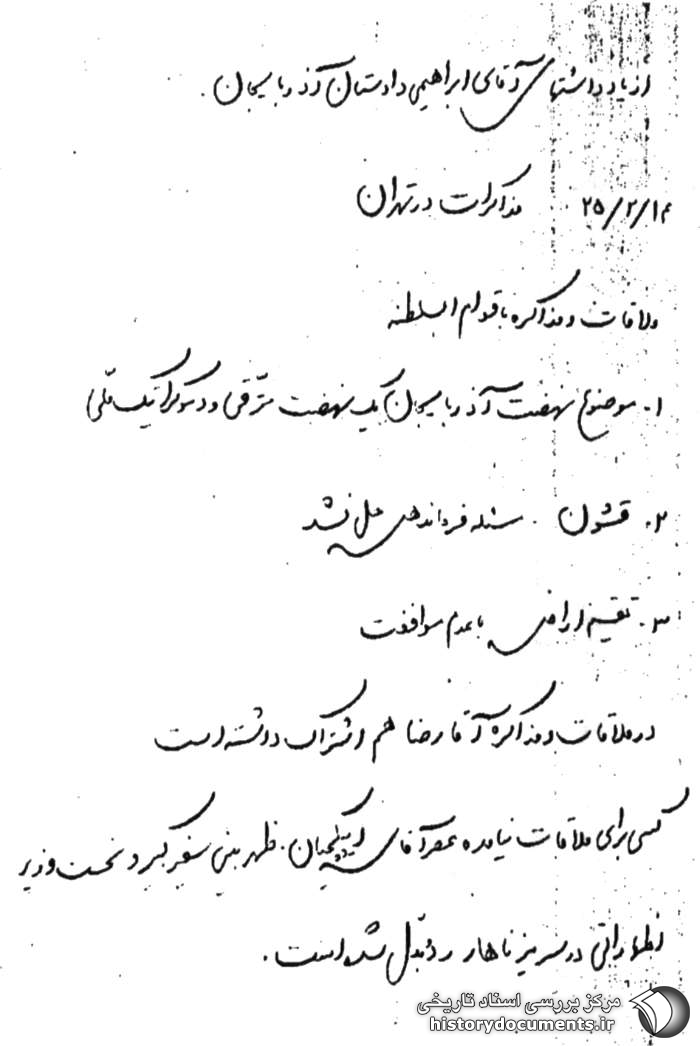 از یادداشتهای آقای ابراهیمی دادستان آذربایجان.
۲۵/۲/۱۴ مذاکرات در تهران
ملاقات و مذاکره با قوام السلطنه
۱. موضوع نهضت آذربایجان یک نهضت مترّقی و دموکراتیک ملّی
۲. قشون. مسئله فرماندهی حل نشد
۳. تقسیم اراضی با عدم موافقت
در ملاقات و مذاکره آقا رضا هم اشتراک داشته است
کسی برای ملاقات نیامده عصر آقای ایپکچیان. ظهر بین سفیر کبیر و نخست وزیر
اظهاراتی در سر میز ناهار ردّ بدّل شده است.
مرکز بررسی اسناد تاریخی
historydocuments.ir